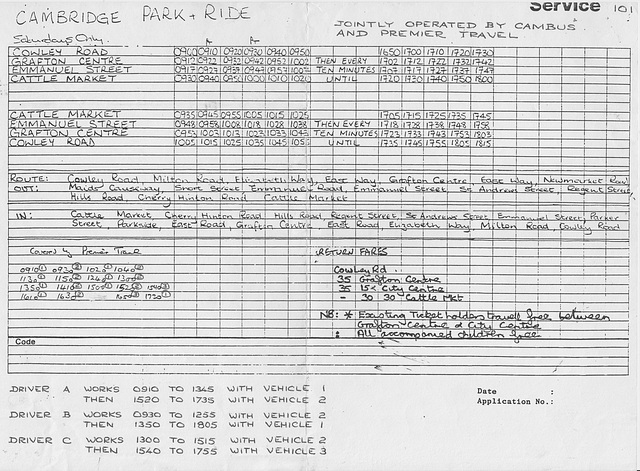 Service 101
CAMBRIDGE PARK + RIDE
JOINTLY OPERATED BY CAMBUS
AND PREMIER TRAVEL
Saturdays Only.
COWLEY ROAD 0900 0910 0920 0930 0940 0950 1650 1700 1710 1720 1730
GRAFTON CENTRE 0912 0922 0932 0942 0952 1002 THEN EVERY 1702 1712 1722 1732 1742
EMMANUEL STREET 0917 0927 0937 0947 0957 1007 TEN MINUTES 1707 1717 1727 1737 1747
CATTLE MARKET 0930 0940 0950 1000 1010 1020 UNTIL 1720 1730 1740 1750 1800
CATTLE MARKET 0935 0945 0955 1005 1015 1025 1705 1715 1725 1735 1745
EMMANUEL STREET 0948 0958 1008 1018 1028 1038 THEN EVERY 1718 1728 1738 1748 1758
GRAFTON CENTRE 0953 1003 1013 1023 1033 1043 TEN MINUTES 1723 1733 1743 1753 1803
COWLEY ROAD 1005 1015 1025 1035 1045 1055 UNTIL 1735 1745 1755 1805 1815
ROUTE: Cowley Road, Milton Road, Elizabeth Way, East Way, Grafton Centre, East Way, Newmarket Road
OUT: Maids Causeway, Short Street Emmanuel Road, Emmanuel Street St Andrews Street, Regent Street
Hills Road, Cherry Hinton Road Cattle Market
IN: Cattle Market, Cherry Hinton Road Hills Road, Regent Street, St Andrews Street Emmanuel Street, Parker
Street, Parkside, East Road, Grafton Centre, East Road Elizabeth Way, Milton Road, Cowley Road
Covered by Premier Travel
RETURN FARES
0910① 0930② 1020① 1040②
1130① 1150② 1240① 1300②
1350① 1410② 1500① 1520② 1540③
1610① 1630② 1720①
Cowley Rd
35 Grafton Centre
35 15* City Centre
- 30 30 Cattle Mkt
NB: * Existing Ticket holders travel free between
Grafton Centre & City Centre
: All accompanied children free
Code
DRIVER A WORKS 0910 TO 1345 WITH VEHICLE 1
THEN 1520 TO 1735 WITH VEHICLE 2
DRIVER B WORKS 0930 TO 1255 WITH VEHICLE 2
THEN 1350 TO 1805 WITH VEHICLE 1
DRIVER C WORKS 1300 TO 1515 WITH VEHICLE 2
THEN 1540 TO 1755 WITH VEHICLE 3
Date :
Application No.: